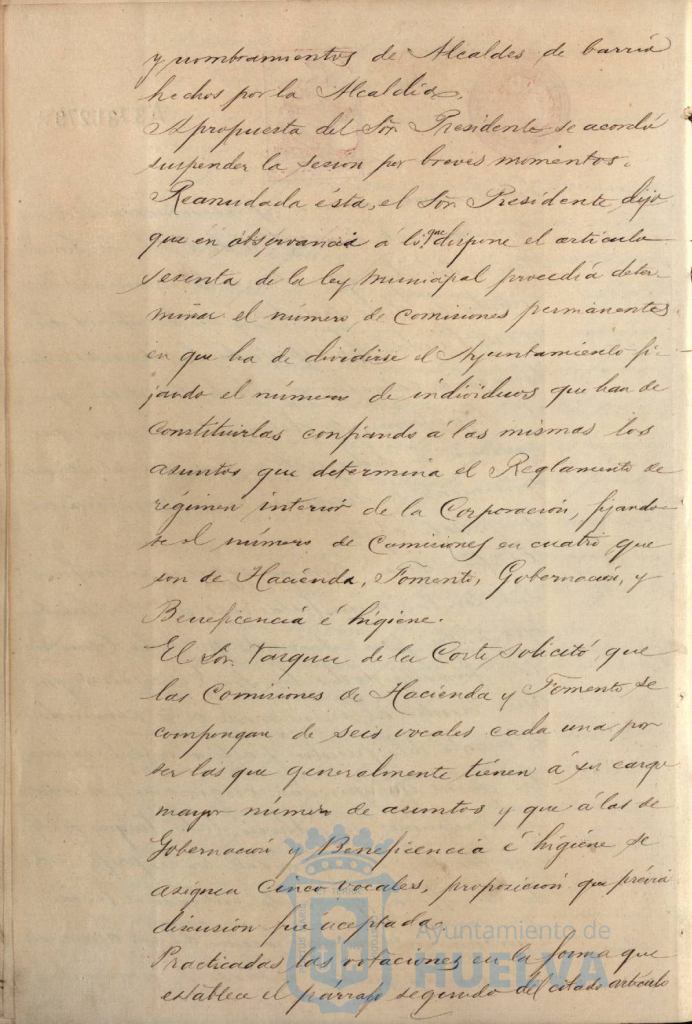 y nombramientos de Alcaldes de barrio
hechos por la Alcaldia.
A propuesta del Sor. Presidente, se acordó
suspender la sesion por breves momentos.
Reanudada ésta, el Sor. Presidente dijo
que en observancia á lo que dispone el articulo
sesenta de la ley Municipal procedia deter-
minar el número de Comisiones permanentes
en que ha de dividirse el Ayuntamiento fi-
jando el número de individuos que han de
constituirlas confiando á las mismas los
asuntos que determina el Reglamento de
régimen interior de la Corporación, fijando-
se el número de Comisiones en cuatro que
son de Hacienda, Fomento, Gobernación, y
Beneficencia é higiene.
El Sor. Vazquez de la Corte, solicitó que
las Comisiones de Hacienda y Fomento se
compongan de seis vocales cada una por
ser las que generalmente tienen á su cargo
mayor número de asuntos y que á las de
Gobernación y Beneficencia é higiene se
asignen cinco vocales, proposición que prévia
discusion fue aceptada.
Practicadas las votaciones en la forma que
establece el párrafo segundo del citado artículo
Ayuntamiento de
HUELVA